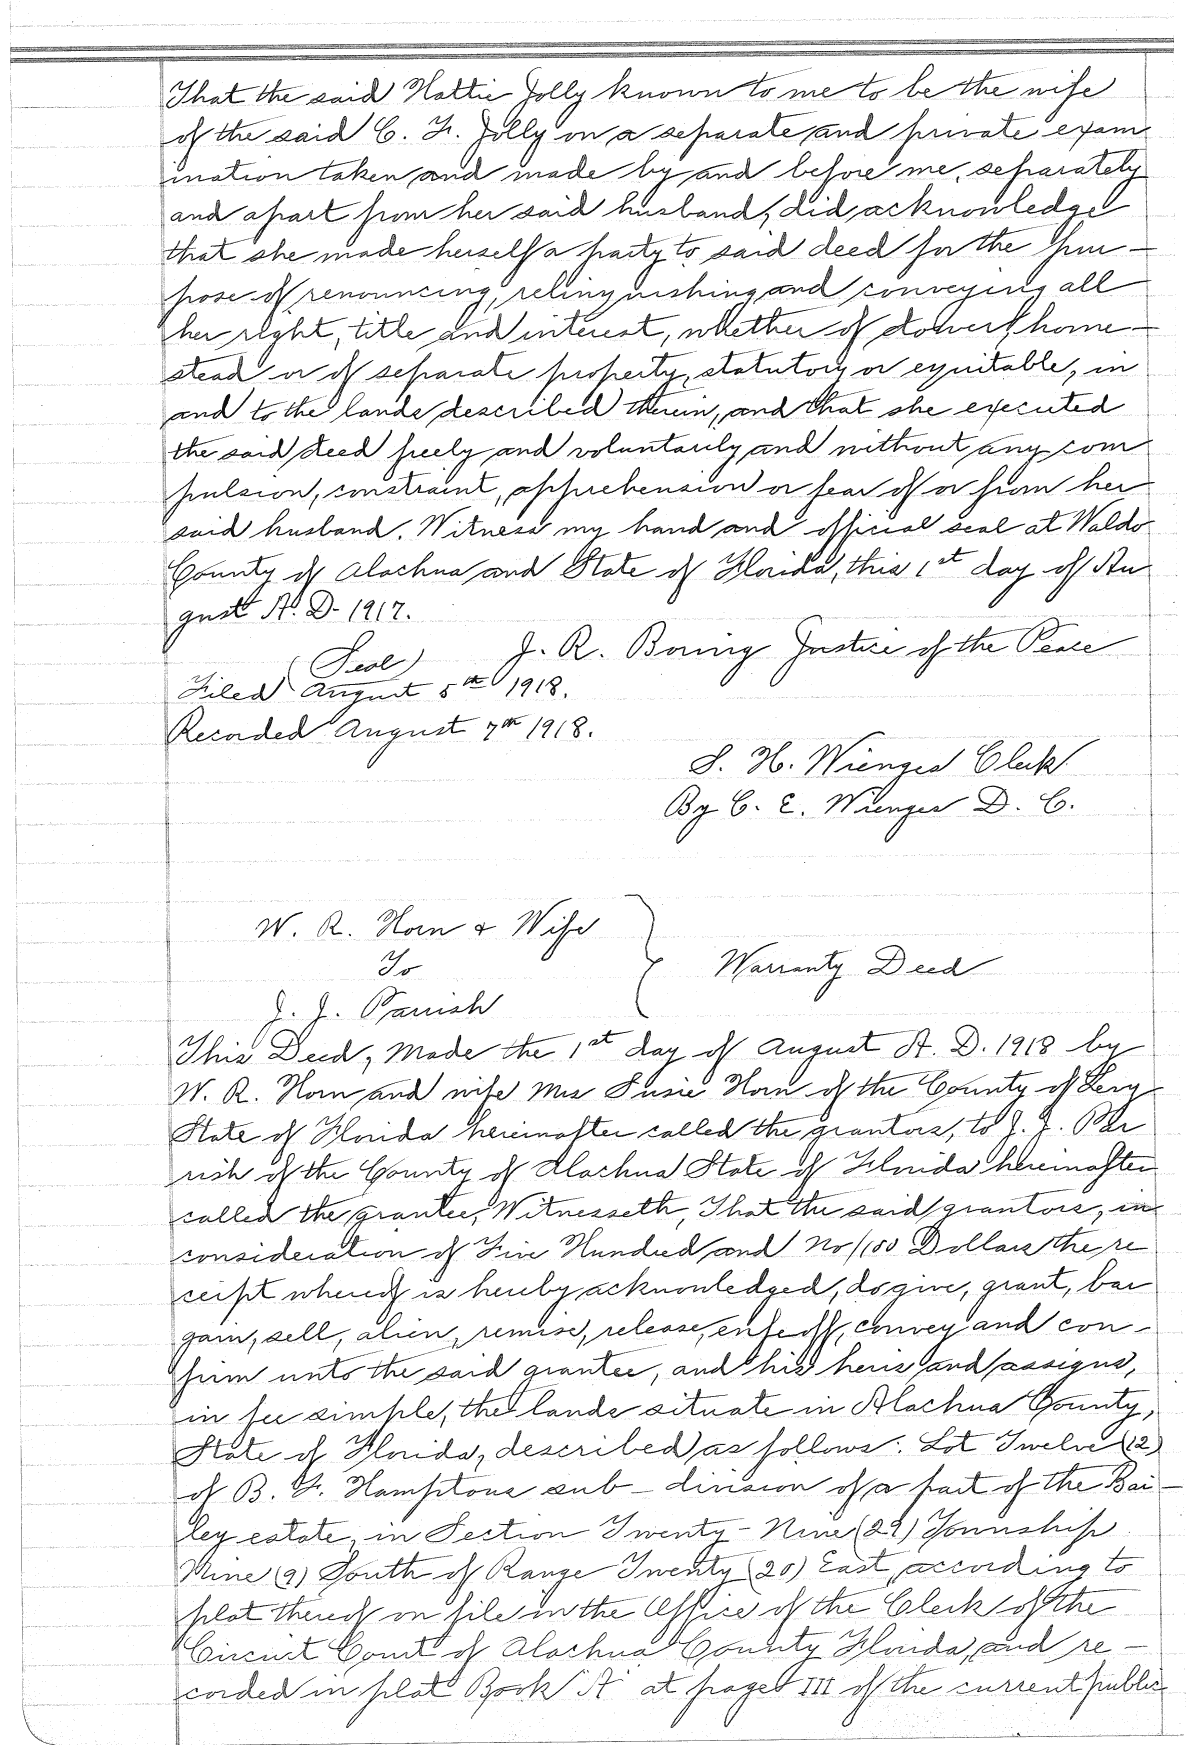 That the said Hattie Jolly known to me to be the wife
of the said C. F. Jolly on a separate and private exam
ination taken and made by and before me, separately
and apart from her said husband, did acknowledge
that she made herself a party to said deed for the pur-
pose of renouncing, relinquishing and conveying all
her right, title and interest, whether of dower, home-
stead or of separate property, statutory or equitable, in
and to the lands described therein, and that she executed
the said deed freely and voluntarily and without any com
pulsion, constraint, apprehension or fear of or from her
said husband. Witness my hand and official seal at Waldo
County of Alachua and State of Florida, this 1st day of Au
gust A. D. 1917.
(Seal) J. R. Boring Justice of the Peace
Filed August 5th 1918.
Recorded August 7th 1918.
S. H. Wienges Clerk
By C. E. Wienges D. C.
W. R. Horn & Wife
To
Warranty Deed
J. J. Parrish
This Deed, Made the 1st day of August A. D. 1918 by
W. R. Horn and wife Mrs Susie Horn of the County of Levy
State of Florida hereinafter called the grantors, to J. J. Par
rish of the County of Alachua State of Florida hereinafter
called the grantee, Witnesseth, That the said grantors, in
consideration of Five Hundred and no/100 Dollars the re
ceipt whereof is hereby acknowledged, do give, grant, bar
gain, sell, alien, remise, release, enfeoff, convey and con-
firm unto the said grantee, and his heris and assigns,
in fee simple, the lands situate in Alachua County,
State of Florida, described as follows: Lot Twelve (12)
of B. F. Hamptons sub-division of a part of the Bai-
ley estate, in Section Twenty-Nine (29) Township
Nine (9) South of Range Twenty (20) East, according to
plat thereof on file in the Office of the Clerk of the
Circuit Court of Alachua County Florida, and re-
corded in plat Book "A" at page III of the current public